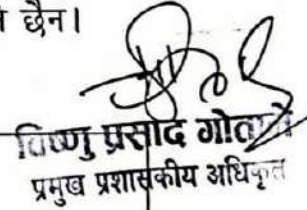 छैन।
विष्णु प्रसाद गोतामे
प्रमुख प्रशासकीय अधिकृत